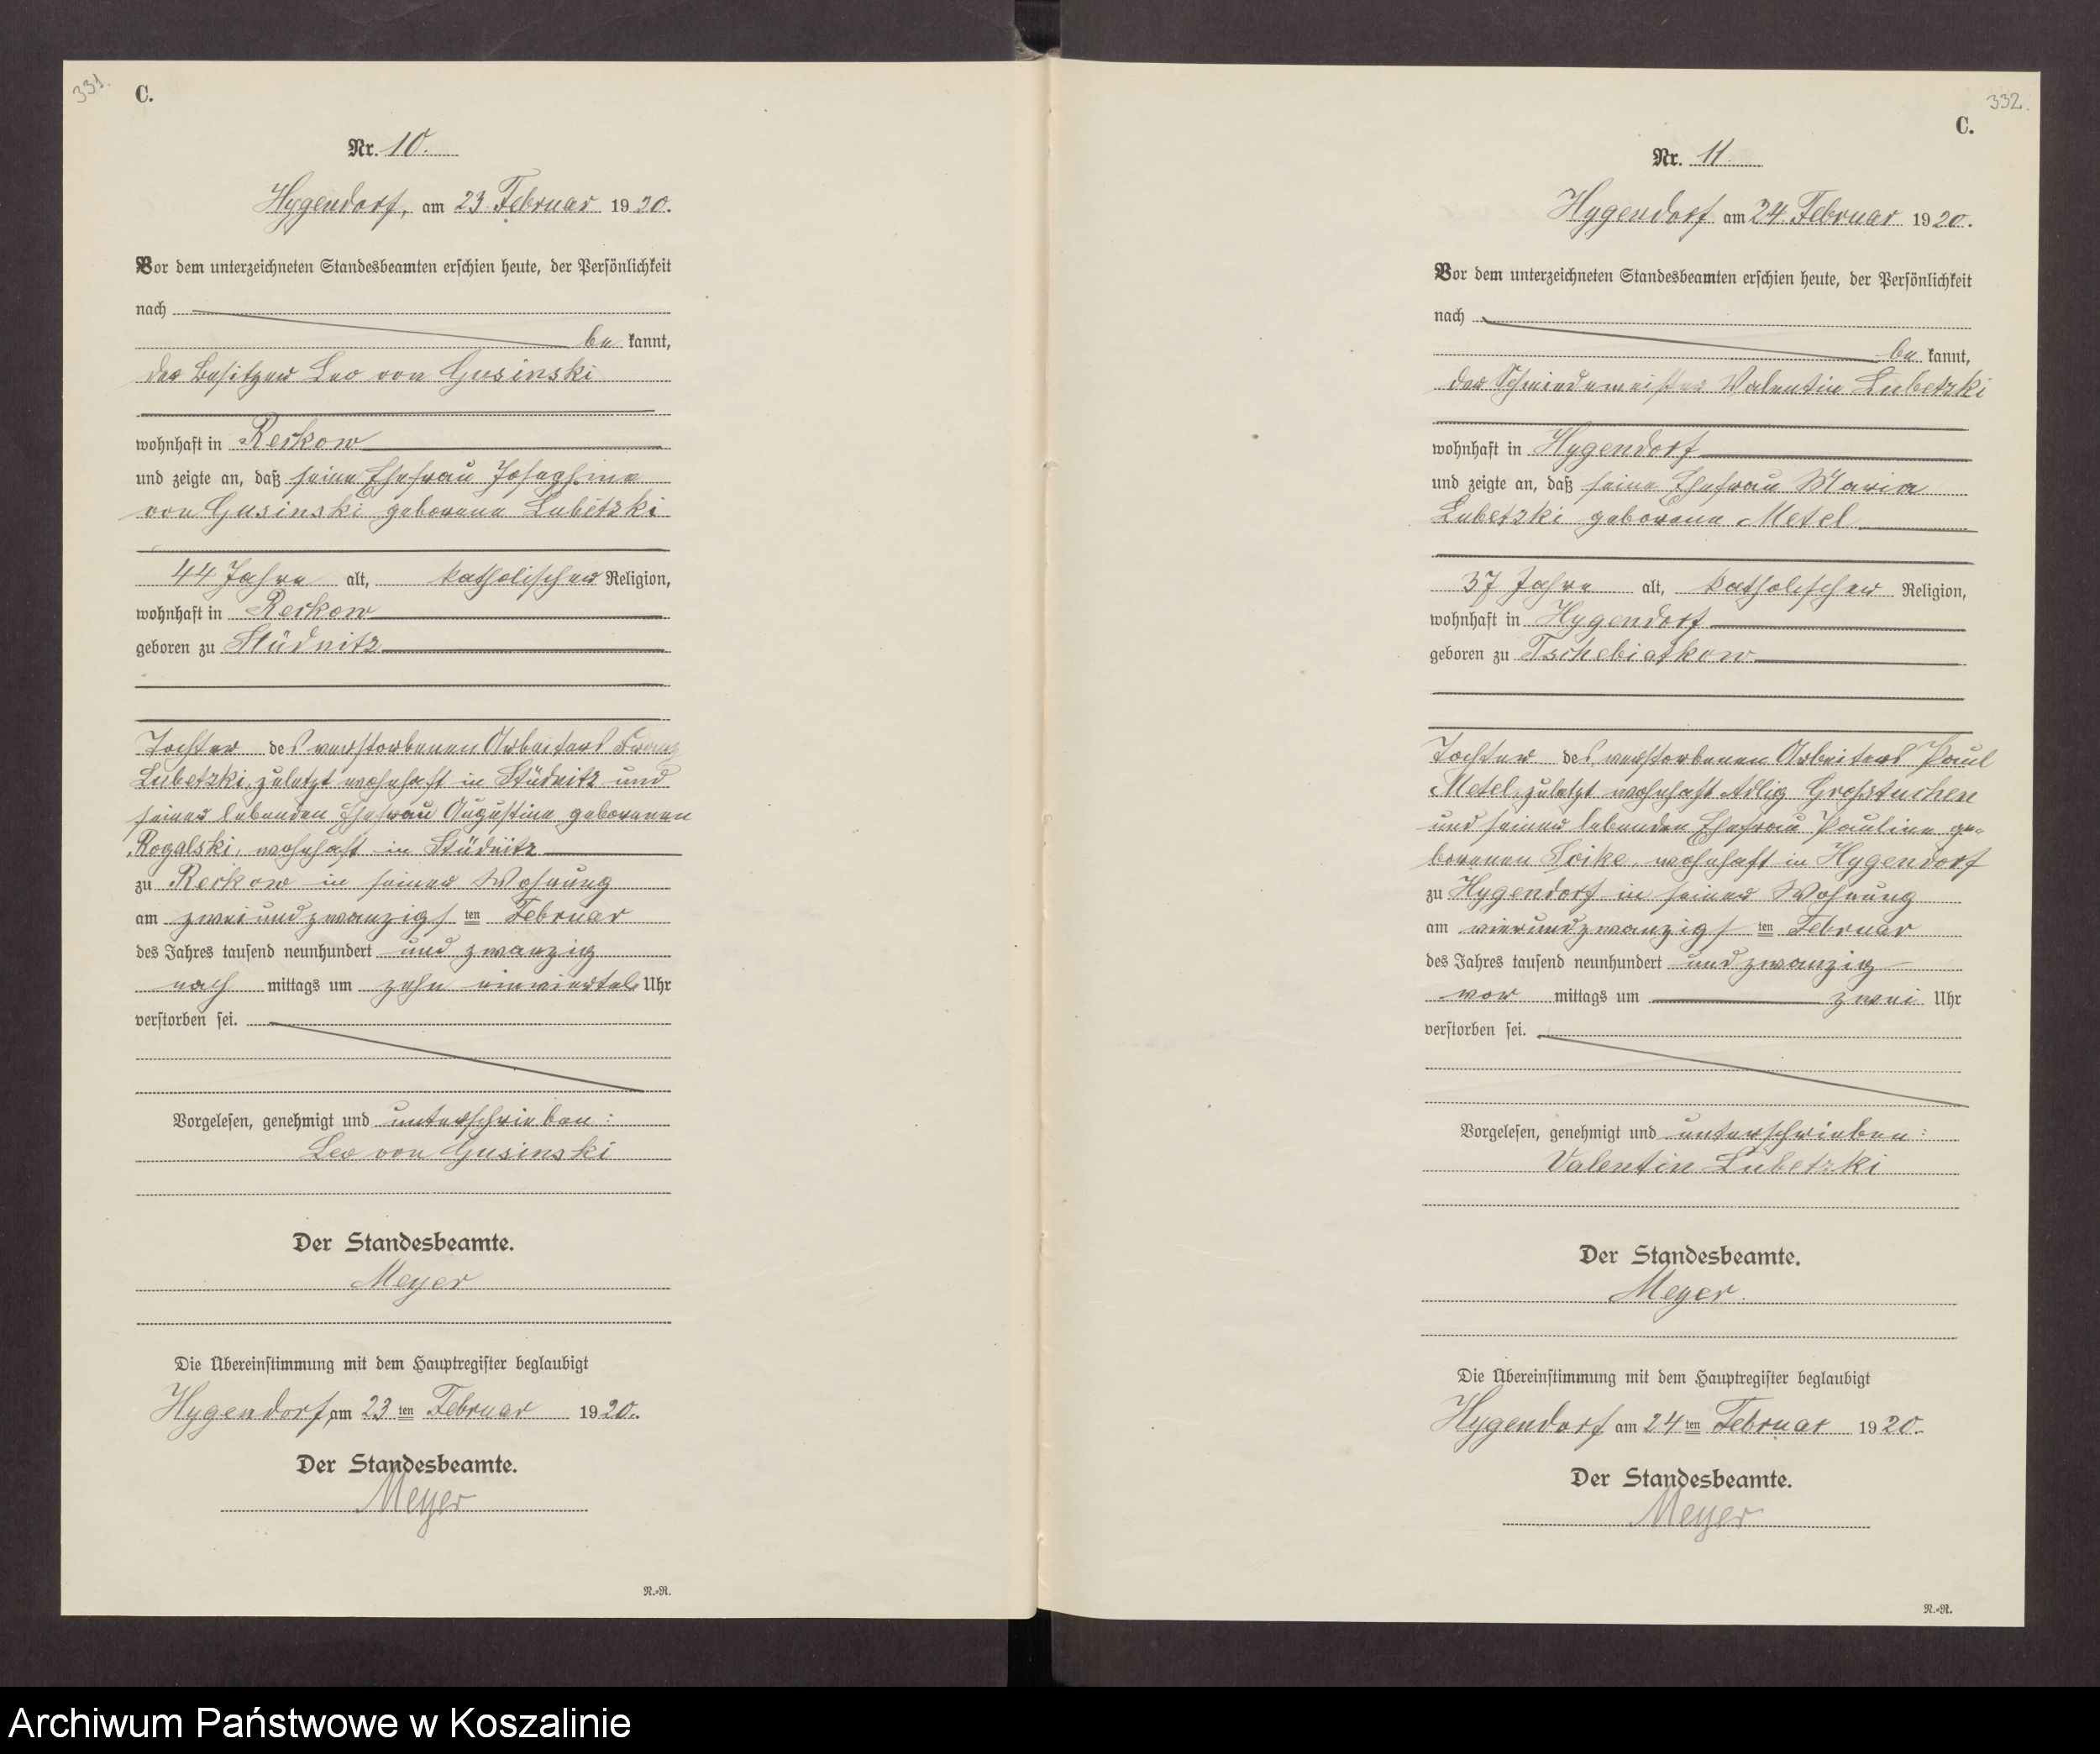 331.
C.
Nr. 10.
Hygendorf, am 23. Februar 1920.
Vor dem unterzeichneten Standesbeamten erschien heute, der Persönlichkeit
nach
be kannt,
der Besitzer Leo von Gusinski
wohnhaft in Reckow
und zeigte an, daß seine Ehefrau Josephine
von Gusinski geborene Lubetzki
44 Jahre alt, katholischer Religion,
wohnhaft in Reckow
geboren zu Stüdnitz
Tochter des verstorbenen Arbeiters Franz
Lubetzki, zuletzt wohnhaft in Stüdnitz und
seiner lebenden Ehefrau Augustine geborenen
Rogalski, wohnhaft in Stüdnitz
zu Reckow in seiner Wohnung
am zweiundzwanzigsten Februar
des Jahres tausend neunhundert und zwanzig
nach mittags um zehn einviertel Uhr
verstorben sei.
Vorgelesen, genehmigt und unterschrieben:
Leo von Gusinski
Der Standesbeamte.
Meyer
Die Übereinstimmung mit dem Hauptregister beglaubigt
Hygendorf, am 23 ten Februar 1920.
Der Standesbeamte.
Meyer
N.-R.
332.
C.
Nr. 11
Hygendorf am 24. Februar 1920.
Vor dem unterzeichneten Standesbeamten erschien heute, der Persönlichkeit
nach
be kannt,
der Schmiedemeister Valentin Lubetzki
wohnhaft in Hygendorf
und zeigte an, daß seine Ehefrau Maria
Lubetzki geborene Metel
37 Jahre alt, katholischer Religion,
wohnhaft in Hygendorf
geboren zu Tschebiatkow
Tochter des verstorbenen Arbeiters Paul
Metel, zuletzt wohnhaft Adlig Grosstuchen
und seiner lebenden Ehefrau Pauline ge-
borenen Soike, wohnhaft in Hygendorf
zu Hygendorf in seiner Wohnung
am vierundzwanzigsten Februar
des Jahres tausend neunhundert und zwanzig
vor mittags um zwei Uhr
verstorben sei.
Vorgelesen, genehmigt und unterschrieben:
Valentin Lubetzki
Der Standesbeamte.
Meyer.
Die Übereinstimmung mit dem Hauptregister beglaubigt
Hygendorf am 24 ten Februar 1920.
Der Standesbeamte.
Meyer
N.-R.
Archiwum Państwowe w Koszalinie